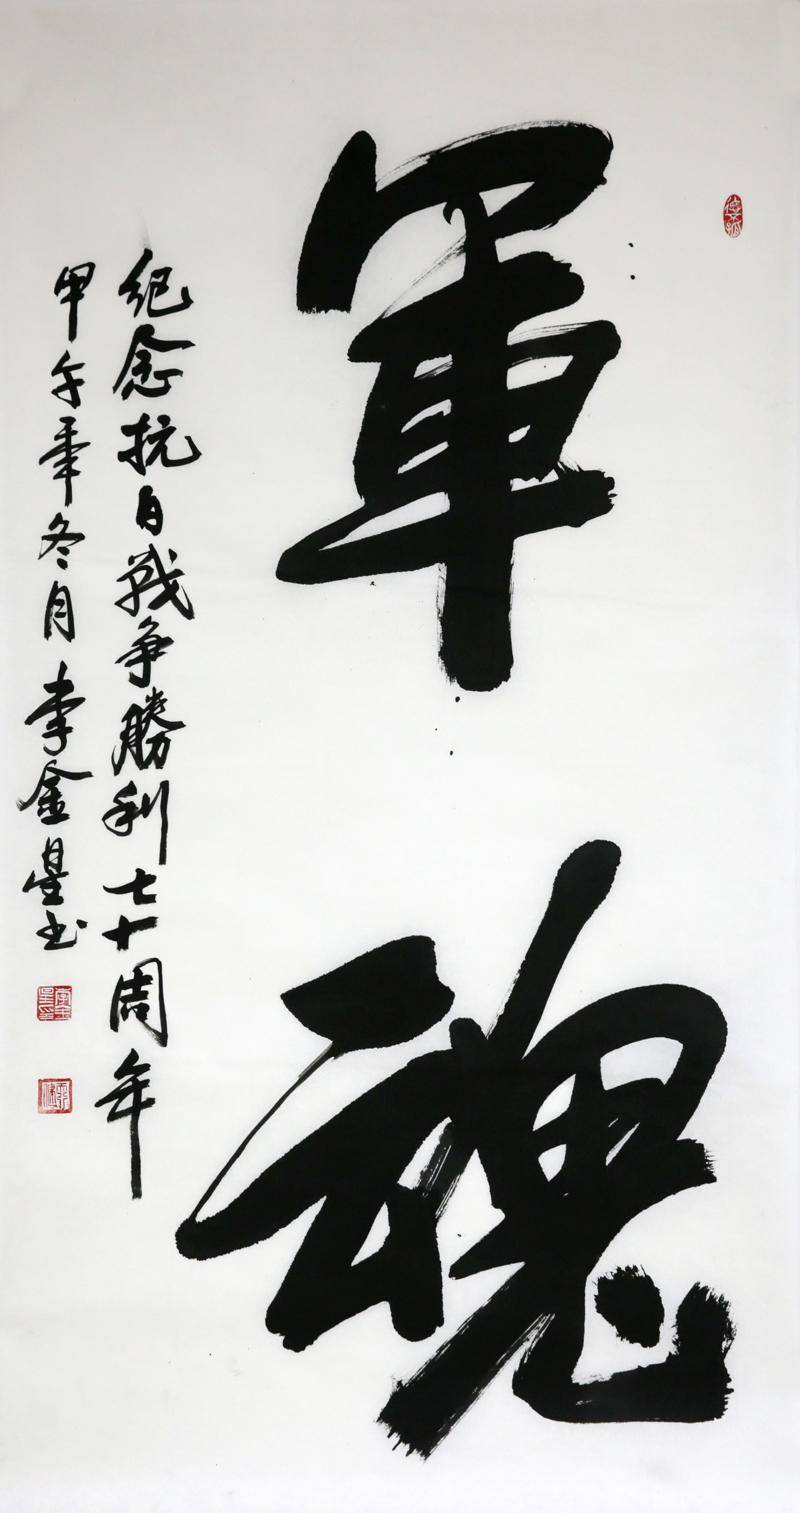 軍魂
紀念抗日戰争勝利七十周年
甲午年冬月李金星书